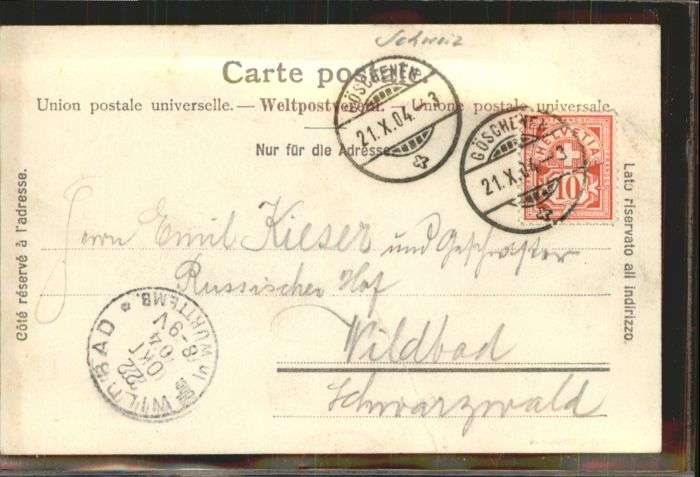 Schweiz
Carte postale.
Union postale universelle. — Weltpostverein. — Unione postale universale
Nur für die Adresse
GÖSCHENEN
21.X.04.-3
GÖSCHENEN
21.X.04.-3
HELVETIA
10
Côté réservé à l'adresse.
Lato riservato all indirizzo.
Herrn Emil Kieser und
Russischer Hof
Wildbad
Schwarzwald
WILDBAD
I WÜRTTEMB.
22 OKT
04
8-9V